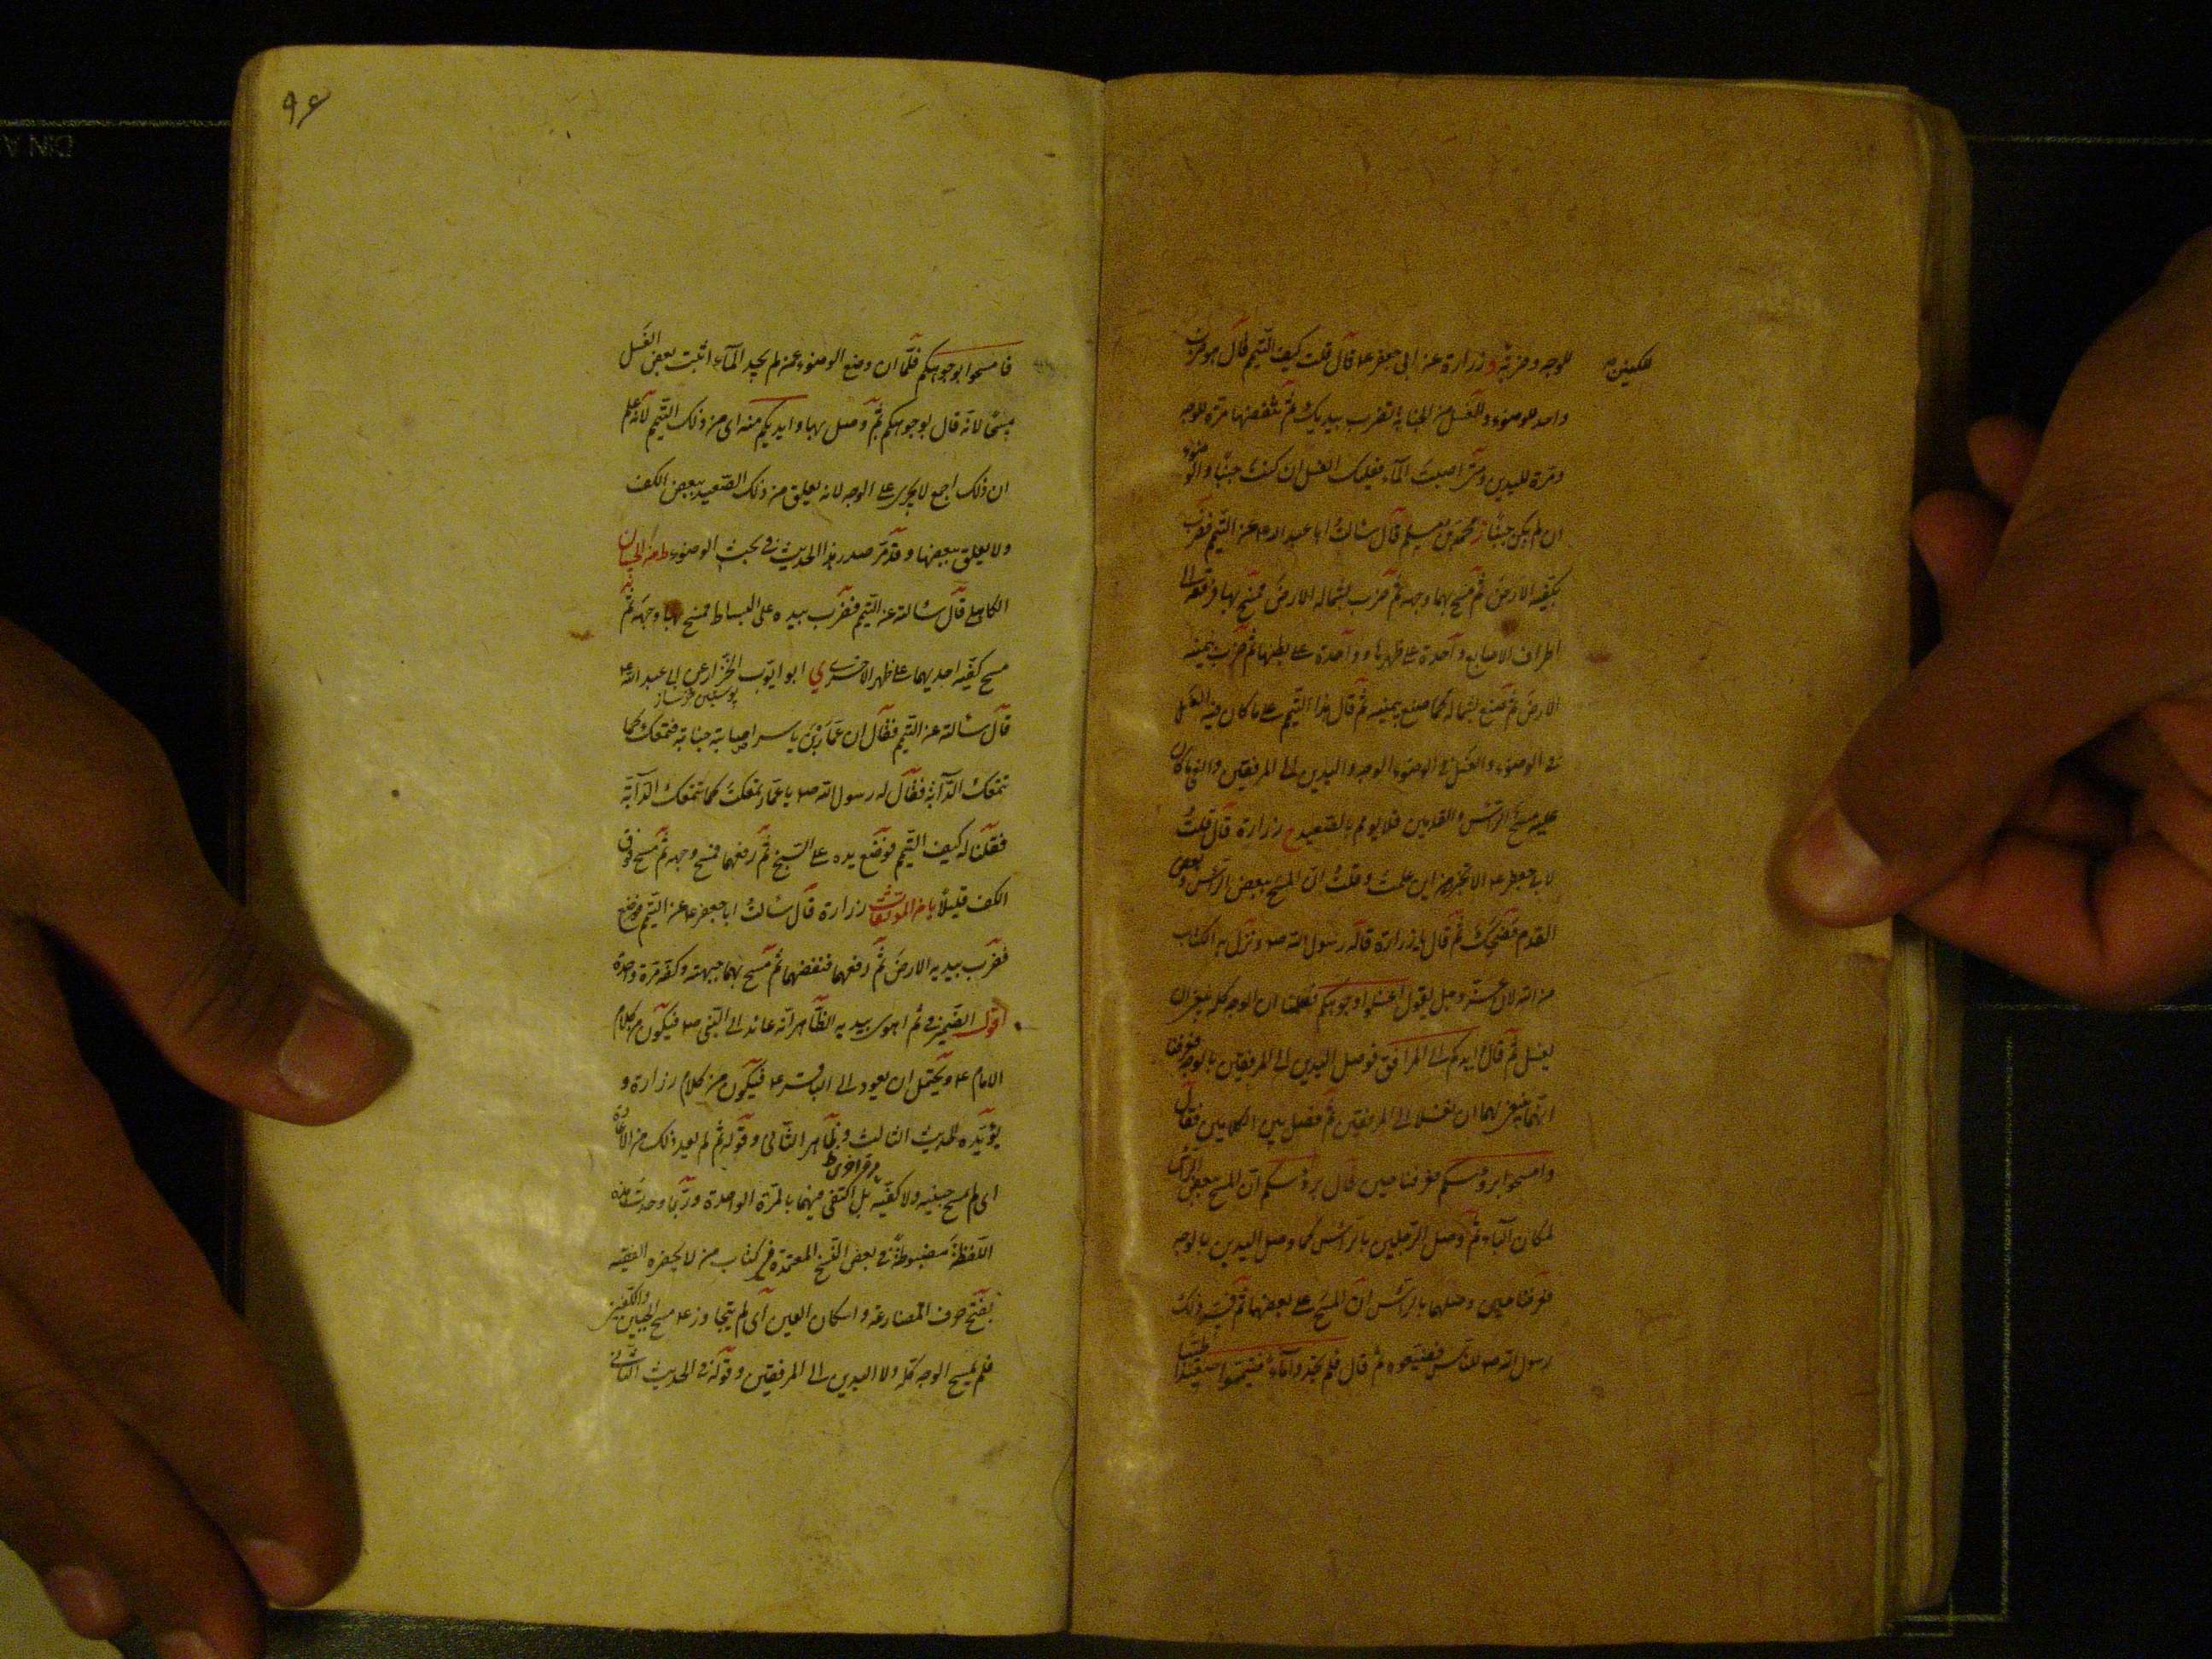 للوجه وضربة و زرارة عن ابي جعفر ع قال قلت كيف التيمم قال هو ضرب
للكفين صح
واحد للوضوء وللغسل من الجنابة تضرب بيديك ثم تنفضهما مرة للوجه
ومرة لليدين ومتى اصبت المآء فعليك الغسل ان كنت جنبا والوضوء
ان لم تكن جنبا ز محمد بن مسلم قال سالت ابا عبد الله ع عن التيمم فضرب
بكفيه الارض ثم مسح بهما وجهه ثم ضرب بشماله الارض فمسح بها مرفقه الى
اطراف الاصابع واحدة على ظهرها وواحدة على بطنها ثم ضرب بيمينه
الارض ثم صنع بشماله كما صنع بيمينه ثم قال هذا التيمم على ما كان فيه الغسل
في الوضوء والغسل في الوضوء الوجه واليدين الى المرفقين والقى ما كان
عليه مسح الراس والقدمين فلا يومم بالصعيد ح زرارة قال قلت
لابي جعفر ع الا تخبرني من اين علمت وقلت ان المسح ببعض الراس وبعض
القدم فضحك ثم قال يا زرارة قاله رسول الله ص ونزل به الكتاب
من الله لان الله عز وجل يقول اغسلوا وجوهكم فعلمنا ان الوجه كله ينبغي ان
يغسل ثم قال وايديكم الى المرافق فوصل اليدين الى المرفقين بالوجه فعرفنا
انهما ينبغي لهما ان تغسلا الى المرفقين ثم فصل بين الكلامين فقال
وامسحوا برؤسكم فعرفنا حين قال برؤسكم ان المسح ببعض الراس
لمكان الباء ثم وصل الرجلين بالراس كما وصل اليدين بالوجه
فعرفنا حين وصلهما بالراس ان المسح على بعضهما ثم فسر ذلك
رسول الله ص للناس فضيعوه ثم قال فلم تجدوا مآء فتيمموا صعيدا طيبا
٩٤
فامسحوا بوجوهكم فلما ان وضع الوضوء عمن لم يجد المآء اثبت بعض الغسل
مسحا لانه قال بوجوهكم ثم وصل بها وايديكم منه اى من ذلك التيمم لانه علم
ان ذلك اجمع لا يجرى على الوجه لانه يعلق من ذلك الصعيد ببعض الكف
ولا يعلق ببعضها وقد مر صدر هذا الحديث في بحث الوضوء ط من الحسان
الكاهلي قال سالته عن التيمم فضرب بيده على البساط فمسح بها وجهه ثم
مسح كفيه احديهما على ظهر الاخرى ي ابو ايوب الخزاز عن ابي عبد الله ع
قال سالته عن التيمم فقال ان عمار بن ياسر اصابته جنابة فتمعك كما
تتمعك الدابة فقال له رسول الله ص يا عمار تمعكت كما تتمعك الدابة
فقلنا له كيف التيمم فوضع يده على المسح ثم رفعها فمسح وجهه ثم مسح فوق
الكف قليلا يا من الموثقات زرارة قال سالت ابا جعفر ع عن التيمم
فضرب بيديه الارض ثم رفعهما فنفضهما ثم مسح بهما جبهته وكفه مرة واحدة
اقول الضمير في ثم اهوى بيديه الظاهر انه عائد الى النبي ص فيكون من كلام
الامام ع ويحتمل ان يعود الى الباقر ع فيكون من كلام زرارة و
يؤيده الحديث الثالث وظاهر الثاني وقوله ثم لم يعد ذلك من الاعادة
اى لم يمسح جبينيه ولا كفيه مرة اخرى بل اكتفى فيهما بالمرة الواحدة وربما وجدت هذه
اللفظة مضبوطة في بعض النسخ المعتمدة في كتاب من لا يحضره الفقيه
بفتح حرف المضارعة واسكان العين اى لم يتجاوز ع مسح الجبين والكفين
فلم يمسح الوجه كله ولا اليدين الى المرفقين وقوله في الحديث الثاني